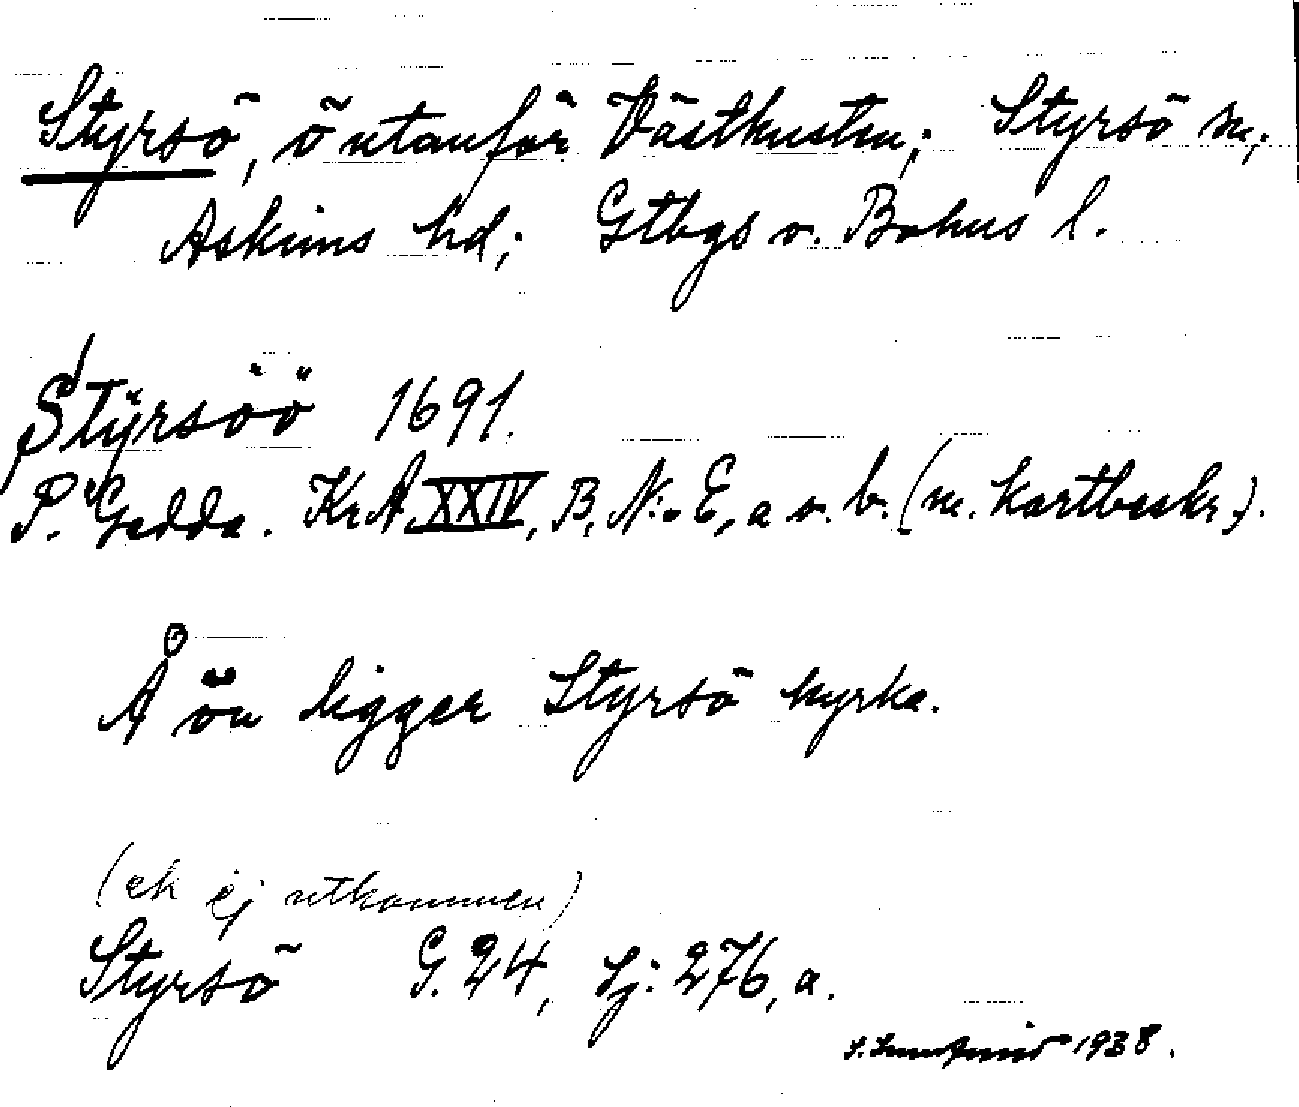 Styrsö, ö utanför Västkusten; Styrsö sn;
Askims hd; Gtbgs o. Bohus l.
Stÿrsöö 1691.
P. Gedda. KrA XXIV, B, N:o E, a o. b. (m. kartbeskr.).
Å ön ligger Styrsö kyrka.
(ek ej utkommen)
Styrsö G. 24, Sj: 276, a.
1938.